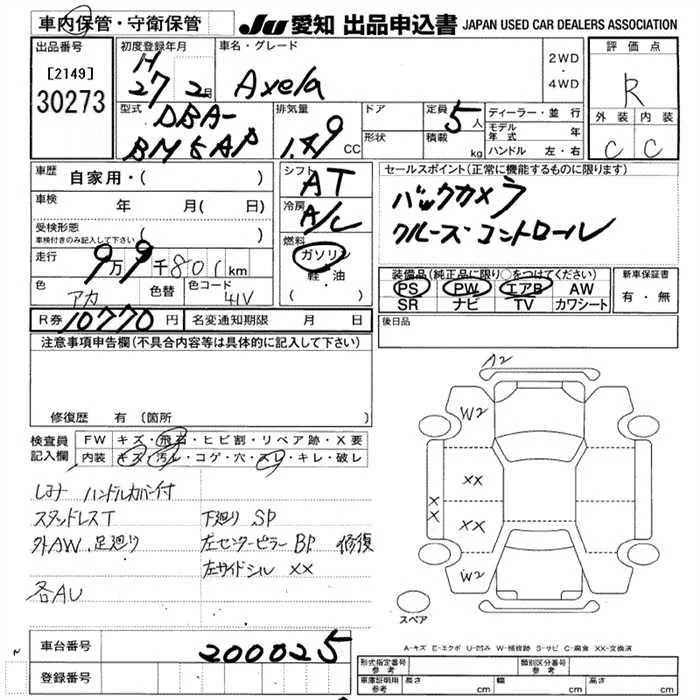 車内保管・守衛保管
JU 愛知 出品申込書 JAPAN USED CAR DEALERS ASSOCIATION
出品番号
[2149]
30273
初度登録年月
H 27 2月
車名・グレード
Axela
2WD
・
4WD
評価点
R
外装 内装
C C
型式
DBA-
BM5AP
排気量
CC
ドア
形状
定員
5人
積載
kg
ディーラー・並行
モデル年式 年
ハンドル 左・右
車歴
自家用・( )
車検 年 月( 日)
受検形態
車検付きのみ記入して下さい
走行
9万9千801km
色
アカ
色替
色コード
41V
シフト
AT
冷房
A/C
燃料
ガソリン
軽・油
セールスポイント(正常に機能するものに限ります)
バックカメラ
クルーズコントロール
装備品(純正品に限り○をつけてください)
PS PW エアB AW
SR ナビ TV カワシート
新車保証書
有・無
R券 10770円 名変通知期限 月 日
後日品
注意事項申告欄(不具合内容等は具体的に記入して下さい)
修復歴 有(箇所
検査員記入欄
FW キズ・飛石・ヒビ割・リペア跡・X要
内装 キズ・汚レ・コゲ・穴・スレ・キレ・破レ
ハンドルカバー付
スタッドレスT
外AW. 足廻り
各AU
下廻り SP
左センターピラー BP 修復
左サイドシル XX
A2
W2
XX
XX
XX
W2
スペア
A-キズ E-エクボ U-凹み W-補修跡 S-サビ C-腐食 XX-交換済
車台番号
200025
登録番号
形式指定番号
参考
類別区分番号
車庫証明用
参考
長さ cm 幅 cm 高さ cm